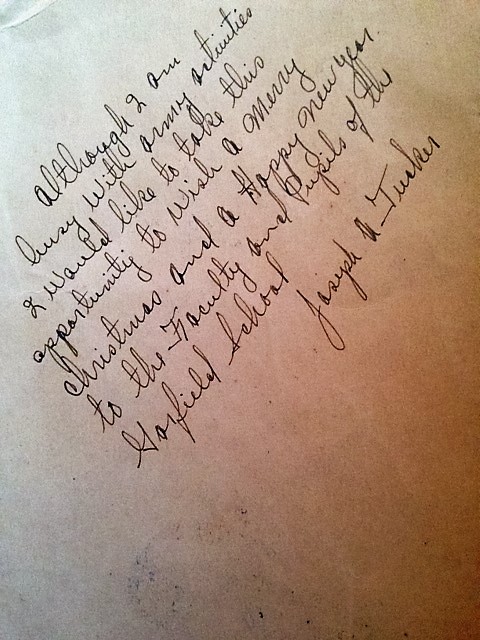 although I am
busy with army activities
I would like to take this
opportunity to wish a merry
christmas and a Happy New year.
to the Faculty and Pupils of the
Garfield School
Joseph A Tucker